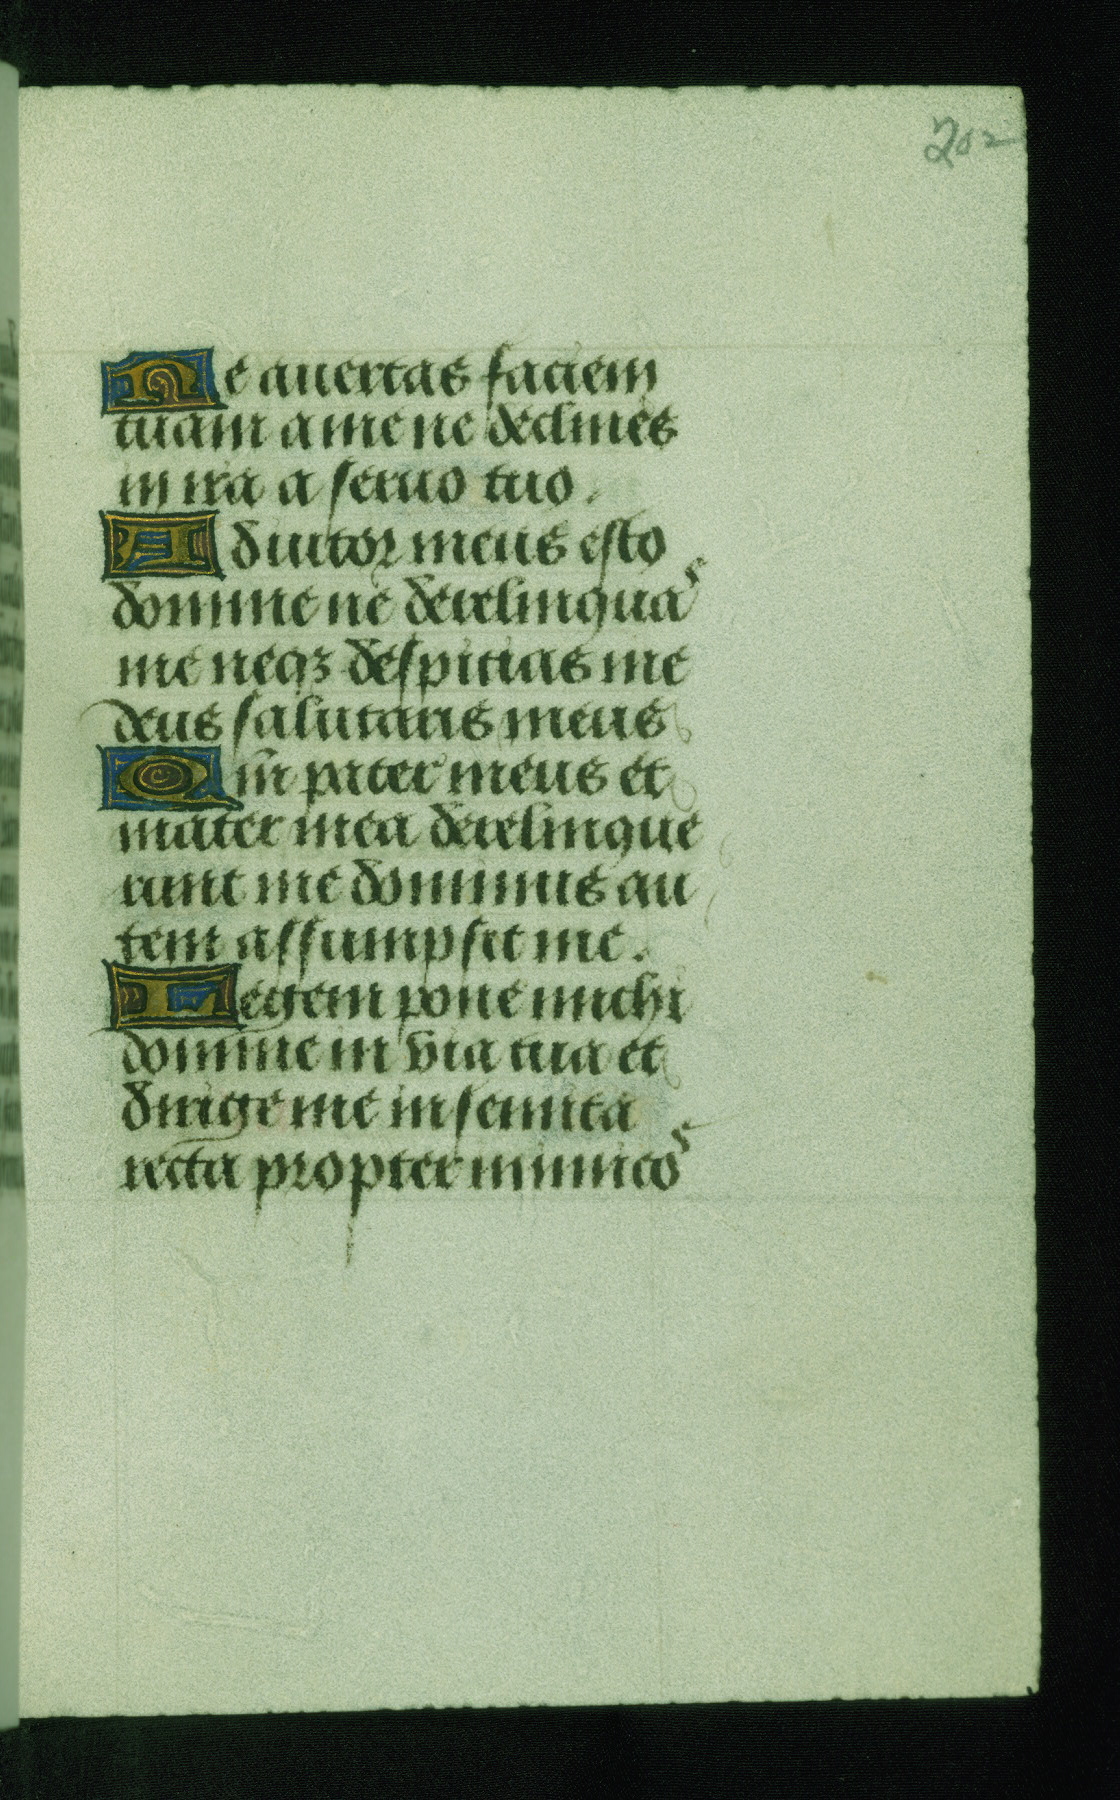 202
Ne auertas faciem
tuam a me ne declines
in ira a seruo tuo.
Adiutor meus esto
domine ne derelinquas
me neqꝫ despicias me
deus salutaris meus
Qm̄ pater meus et
mater mea derelinque
runt me dominus au
tem assumpsit me.
Legem pone michi
domine in via tua et
dirige me in semita
recta propter inimicos